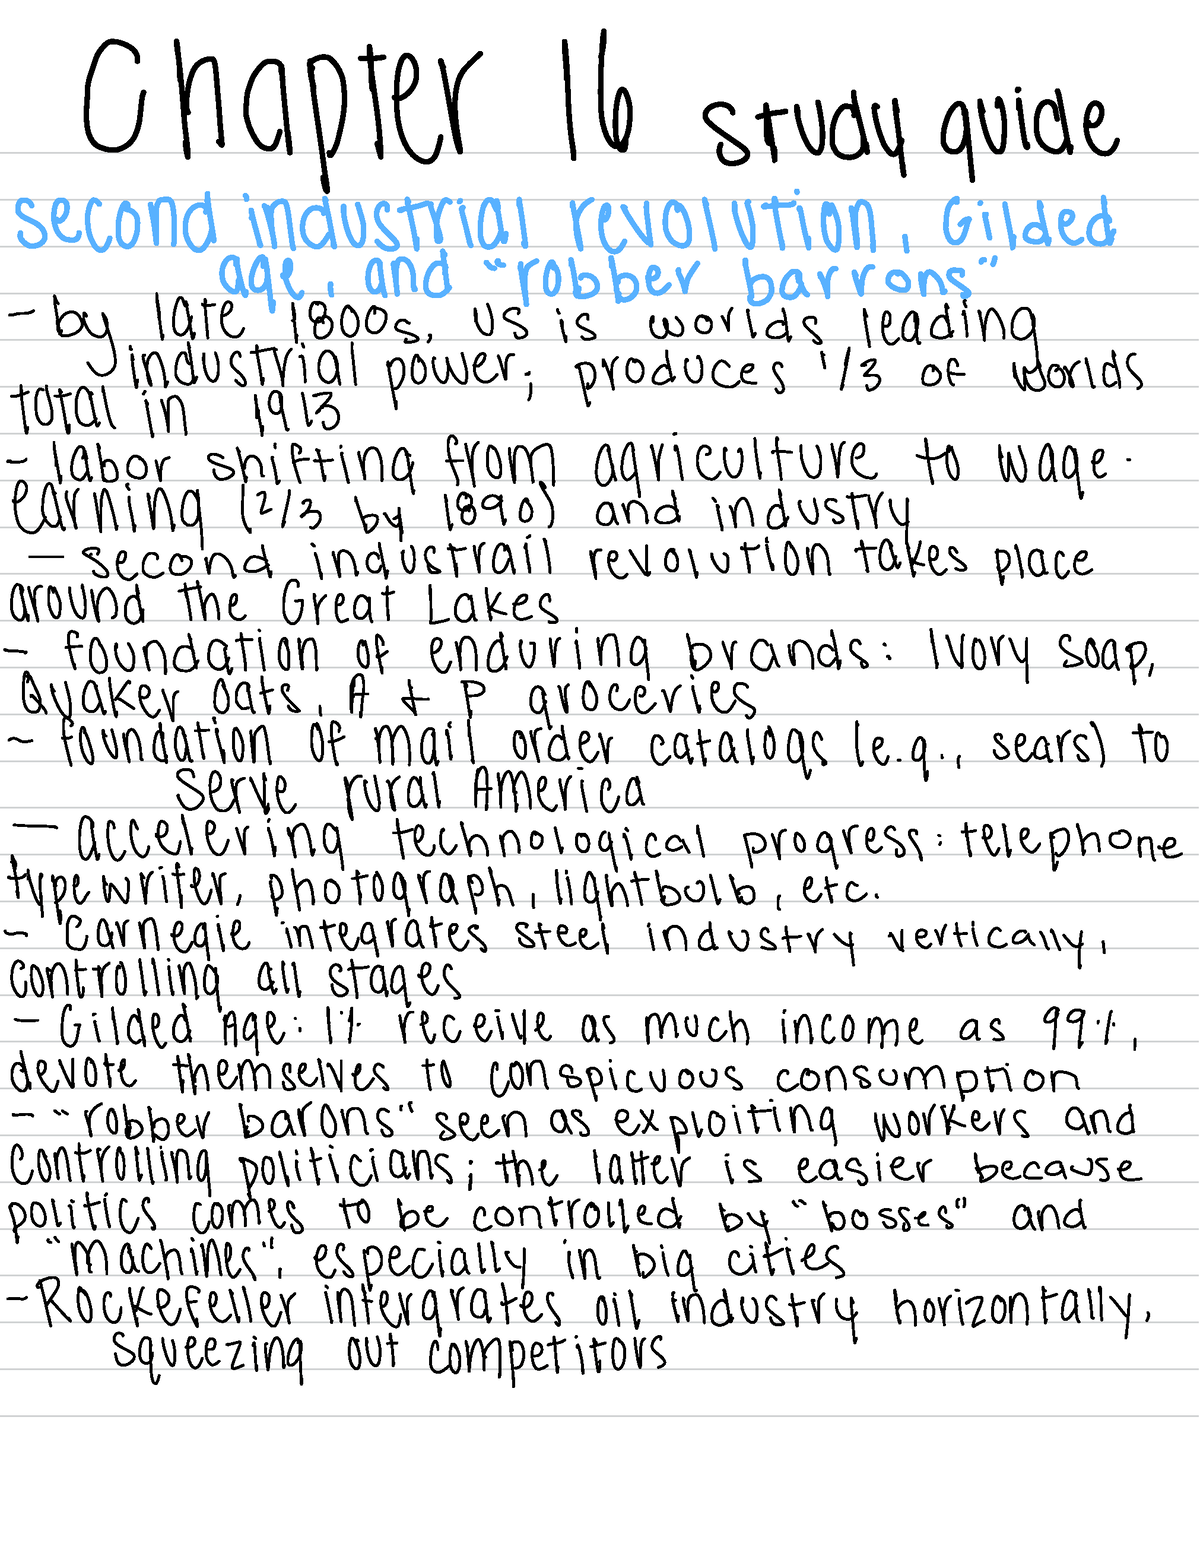 Chapter 16 study guide
second industrial revolution, Gilded
age, and "robber barrons"
- by late 1800s, US is worlds leading
industrial power; produces 1/3 of worlds
total in 1913
- labor shifting from agriculture to wage-
earning (2/3 by 1890) and industry
- second industrail revolution takes place
around the Great Lakes
- foundation of enduring brands: Ivory soap,
Quaker Oats, A + P groceries
- foundation of mail order catalogs (e.g., sears) to
serve rural America
- accelering technological progress: telephone
typewriter, photograph, lightbulb, etc.
- Carnegie integrates steel industry vertically,
controlling all stages
- Gilded Age: 1% receive as much income as 99%,
devote themselves to conspicuous consumption
- "robber barons" seen as exploiting workers and
controlling politicians; the latter is easier because
politics comes to be controlled by "bosses" and
"machines", especially in big cities
- Rockefeller intergrates oil industry horizontally,
squeezing out competitors